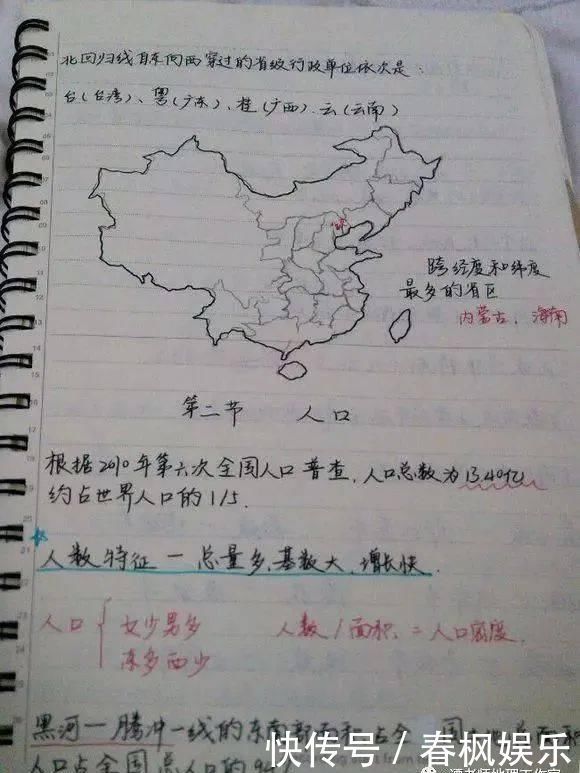 北回归线自东向西穿过的省级行政单位依次是:
台(台湾)、粤(广东)、桂(广西)、云(云南)
跨经度和纬度
最多的省区
内蒙古、海南
第二节 人口
根据2010年第六次全国人口普查,人口总数为13.40亿
约占世界人口的1/5.
人数特征—总量多,基数大,增长快.
人口 { 女少男多
东多西少
人数/面积 = 人口密度.
黑河—腾冲一线的东南部面积占全国
人口占全国总人口的9
快传号 / 春枫娱乐